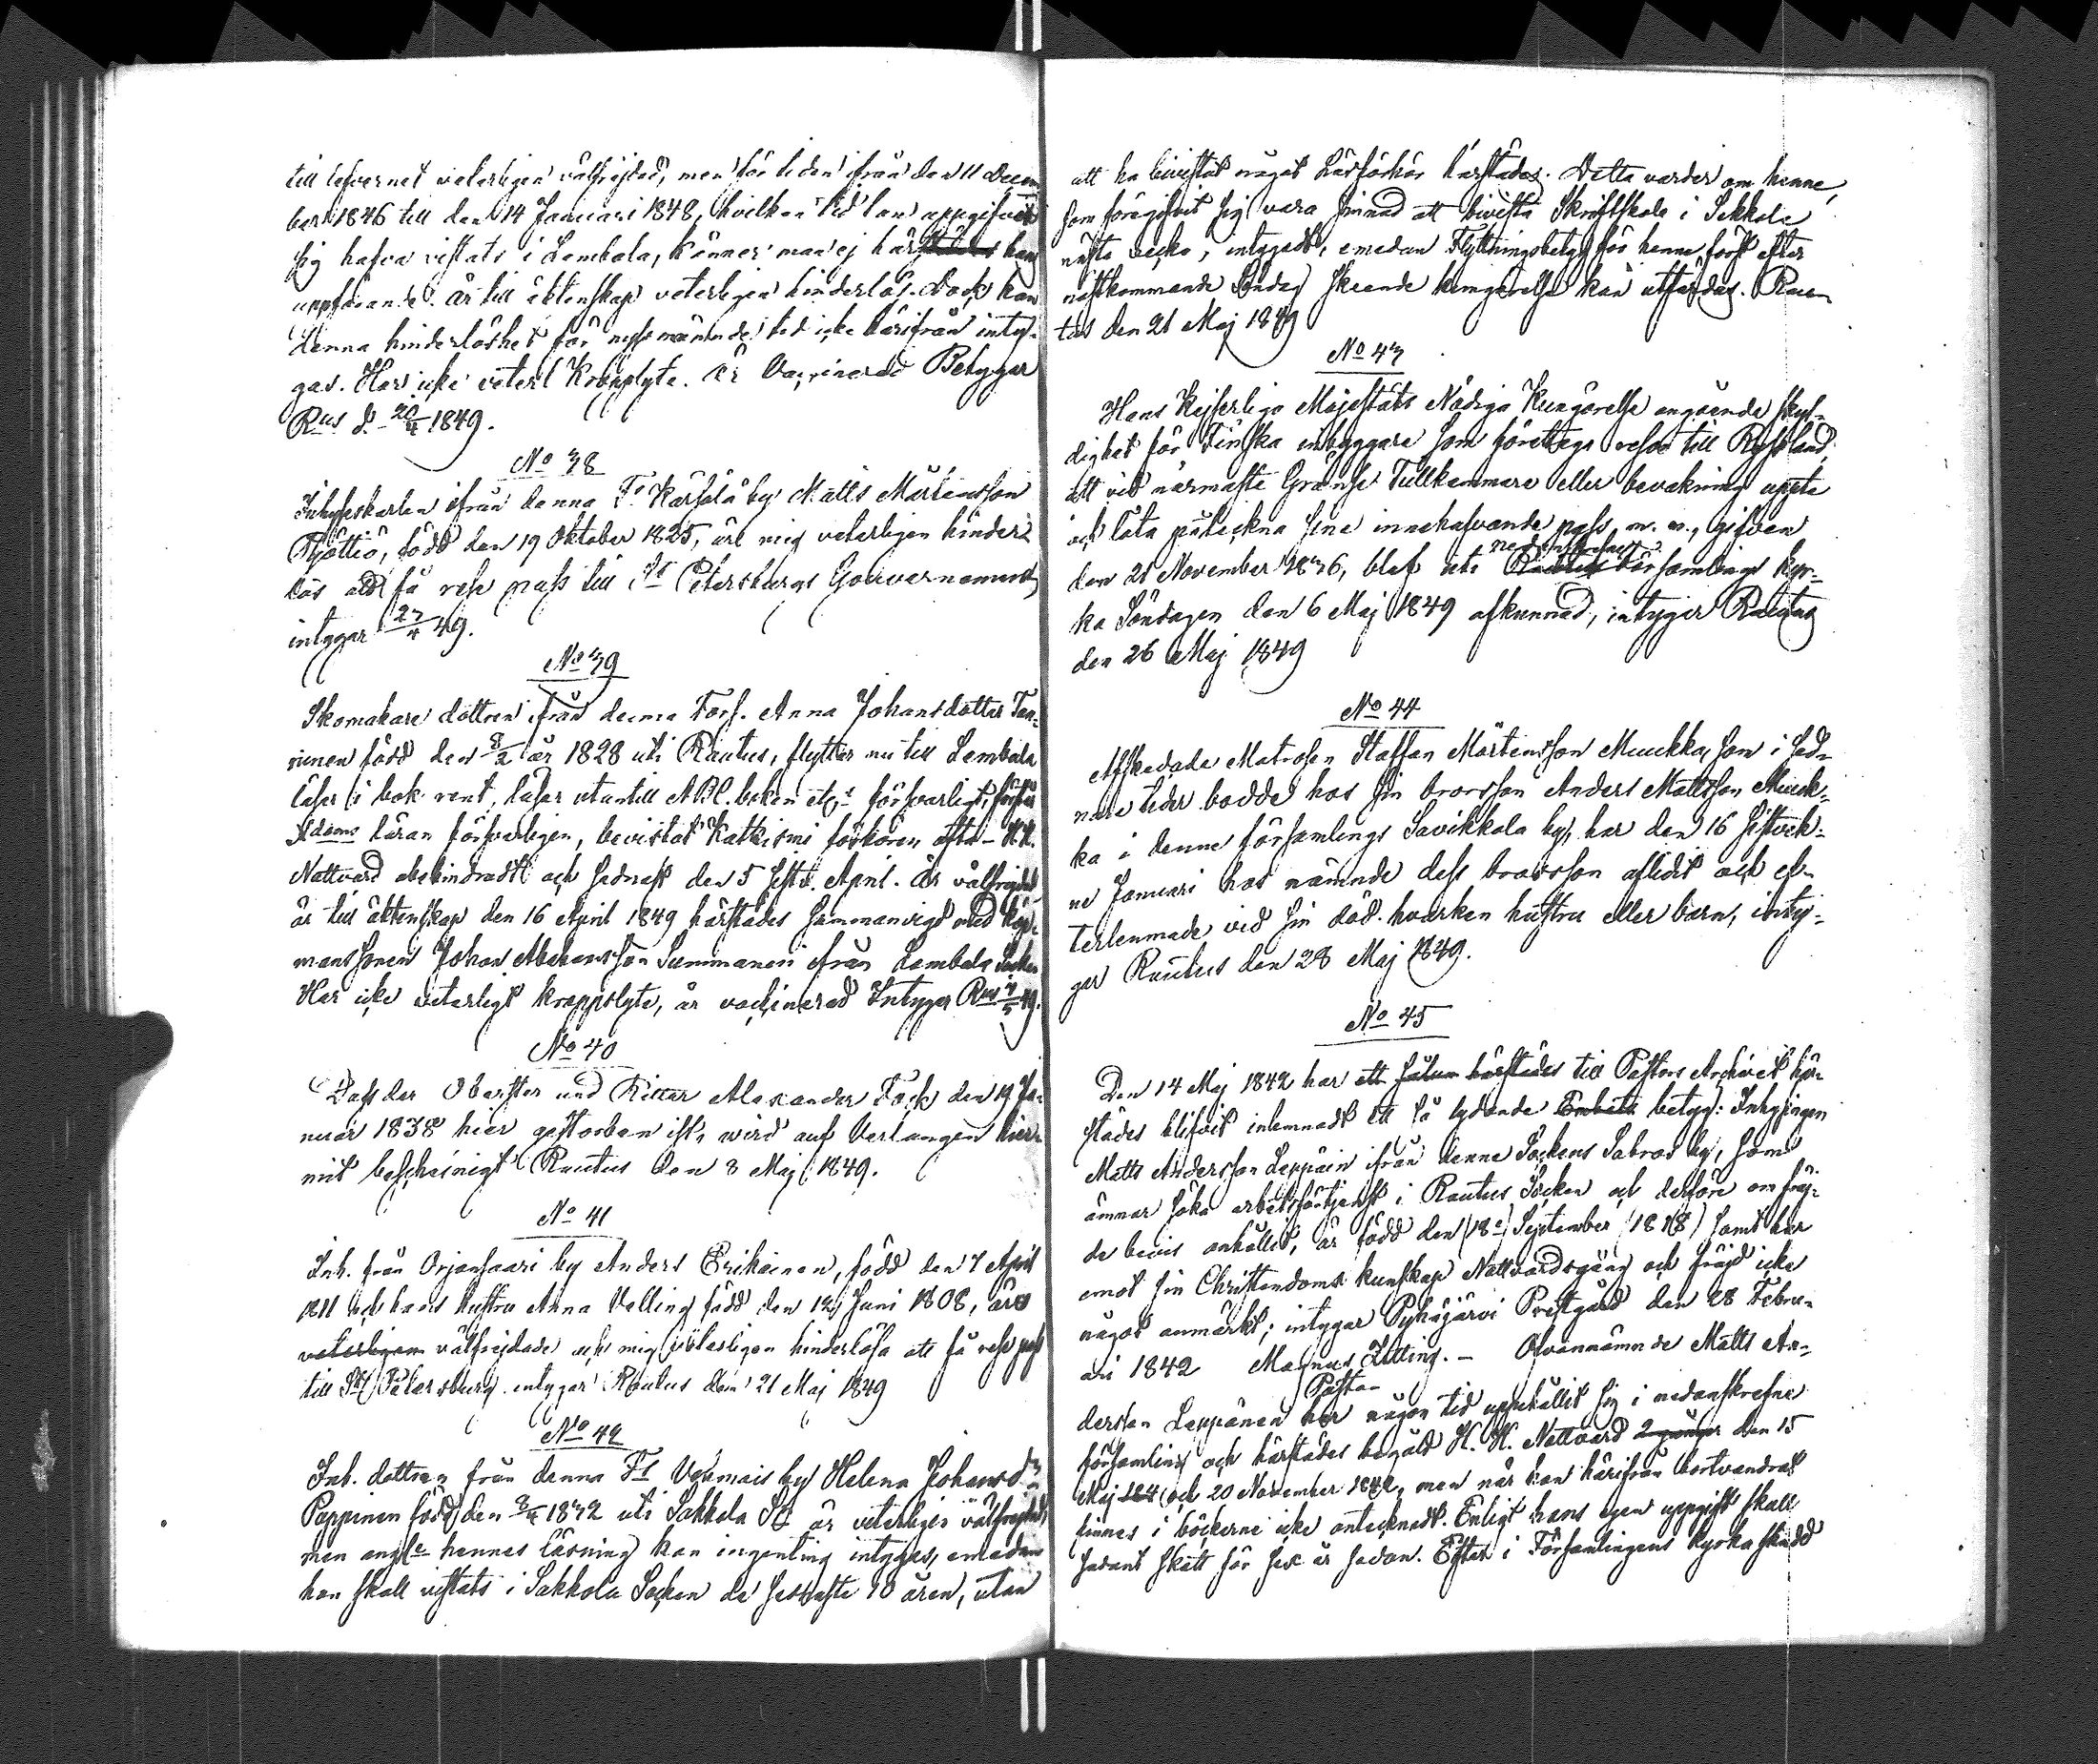 till lefvernet veterligen välfrejdad, men för tiden ifrån den 11 Decem
ber 1846 till den 14 Januari 1848, hvilken tid han uppgifvit
sig hafva vistats i Lembala, känner man ej härstädes hans
uppförande. är till äktenskap veterligen hinderlös. Dock kan
denna hinderlöshet för nyssnämnde tid icke härifrån inty-
gas. Har icke veterl Kroppslyte. är Vaccinerad Betygar
Rus d. 20/4 1849.
No 38
Inhyseskarlen ifrån denna Fs. Kärsälä by Matts Mårtensson
Pöttiö, född den 19 Oktober 1825, är mig veterligen hinder
lös att få rese pass till St Petersburgs Gouvernement
intygar 27/4 49.
No 39
Skomakare dottren ifrån denna Förs. Anna Johansdotter Tan-
ninen född den 8/2 år 1828 uti Rautus, flyttar nu till Lembala
läser i bok rent, läser utantill ABC. boken etc. försvarligt, förstår
Xdoms läran försvarligen, bevistat Katkismi förhören ofta - H.H.
Nattvard obehindradt och sednast den 5 sistl. April. är välfrejdad
är till äktenskap den 16 April 1849 härstädes sammanvigd med
manssonen Johan Abrahamsson Summanen ifrån Lembala Socken
Har icke veterligt kroppslyte, är vaccinerad Intygar Rus 7/5 49.
No 40
Dass der Oberster und Ritter Alexander Fock den 19 Ja-
nuar 1838 hier gestorben ist, wird auf Verlangen hier-
mit bescheinigt Rautus den 8 Maj 1849.
No 41
Inh. från Orjansaari by Anders Erikäinen, född den 7 April
1811 och hans hustru Anna Velling född den 12 Juni 1808, äro
veterligen välfrejdade och mig veterligen hinderlösa att få rese pass
till St Petersburg intygar Rautus den 21 Maj 1849
No 42
Inh. dottren från denna Fs Vehmais by Helena Johansdr
Pappinen född den 1832 uti Sakkola Sn är veterligen välfrejdad,
men angde hennes läsning kan ingenting intygas, emedan
hon skall vistats i Sakkola Socken de sednaste 10 åren, utan
att ha bevistat något Läsförhör härstädes. Detta varder om henne,
som föregifvit sig vara sinnad att bivista Skriftskola i Sakkola
nästa vecka, intygadt, emedan Flyttningsbetyg för henne först efter
nästkommande Söndag skeende kungörelse kan utfärdas. Rau-
tus den 21 Maj 1849
No 43
Hans Kejserliga Majestäts Nådiga Kungörelse angående skyl-
dighet för Finska inbyggare som företaga resor till Ryssland,
att vid närmaste Gräns Tullkammare eller bevakning uppte
och låta påteckna sine innehafvande pass, m. m., gifven
den 21 November 1836, blef uti Rautus nedanskrefne Församlings kyr-
ka Söndagen den 6 Maj 1849 afkunnad, intygar Rautus
den 26 Maj 1849
No 44
Afskedade Matrosen Staffan Mårtensson Muukka, som i sed-
nare tider bodde hos sin brorson Anders Mattsson Muuk-
ka i denne församlings Savikkala by, har den 16 sistvik-
ne Januari hos nämnde dess brorsson aflidit och ef-
terlemnade vid sin död hvarken hustru eller barn, inty-
gar Rautus den 28 Maj 1849.
No 45
Den 14 Maj 1842 har ett sålun härstädes till Pastors Archivet här-
städes blifvit inlemnadt ett så lydande Embets betyg: Inhysingen
Matts Andersson Leppäin ifrån denne Sockens Sabroo by, som
ämnar söka arbetsförtjenst i Rautus Socken och derföre om fräj-
de bevis anhållit, är född den (18e) September (1818) samt har
emot sin Christendoms kunskap Nattvardsgång och fräjd icke
något anmärkt; intygar Pyhäjärvi Prestgård den 28 Febru-
ari 1842 Magnus Zitting. - Ofvannämnde Matts An-
Pastor
dersson Leppänen har någon tid uppehållit sig i nedanskrefne
församling och härstädes begådt H. H. Nattvard 2 gånger den 15
Maj 184 och 20 November 1842, men når han härifrån bortvandrat
finnes i böckerne icke antecknadt. Enligt hans egen uppgift skall
sådant skett för sex år sedan. Efter i Församlingens kyrka skedd